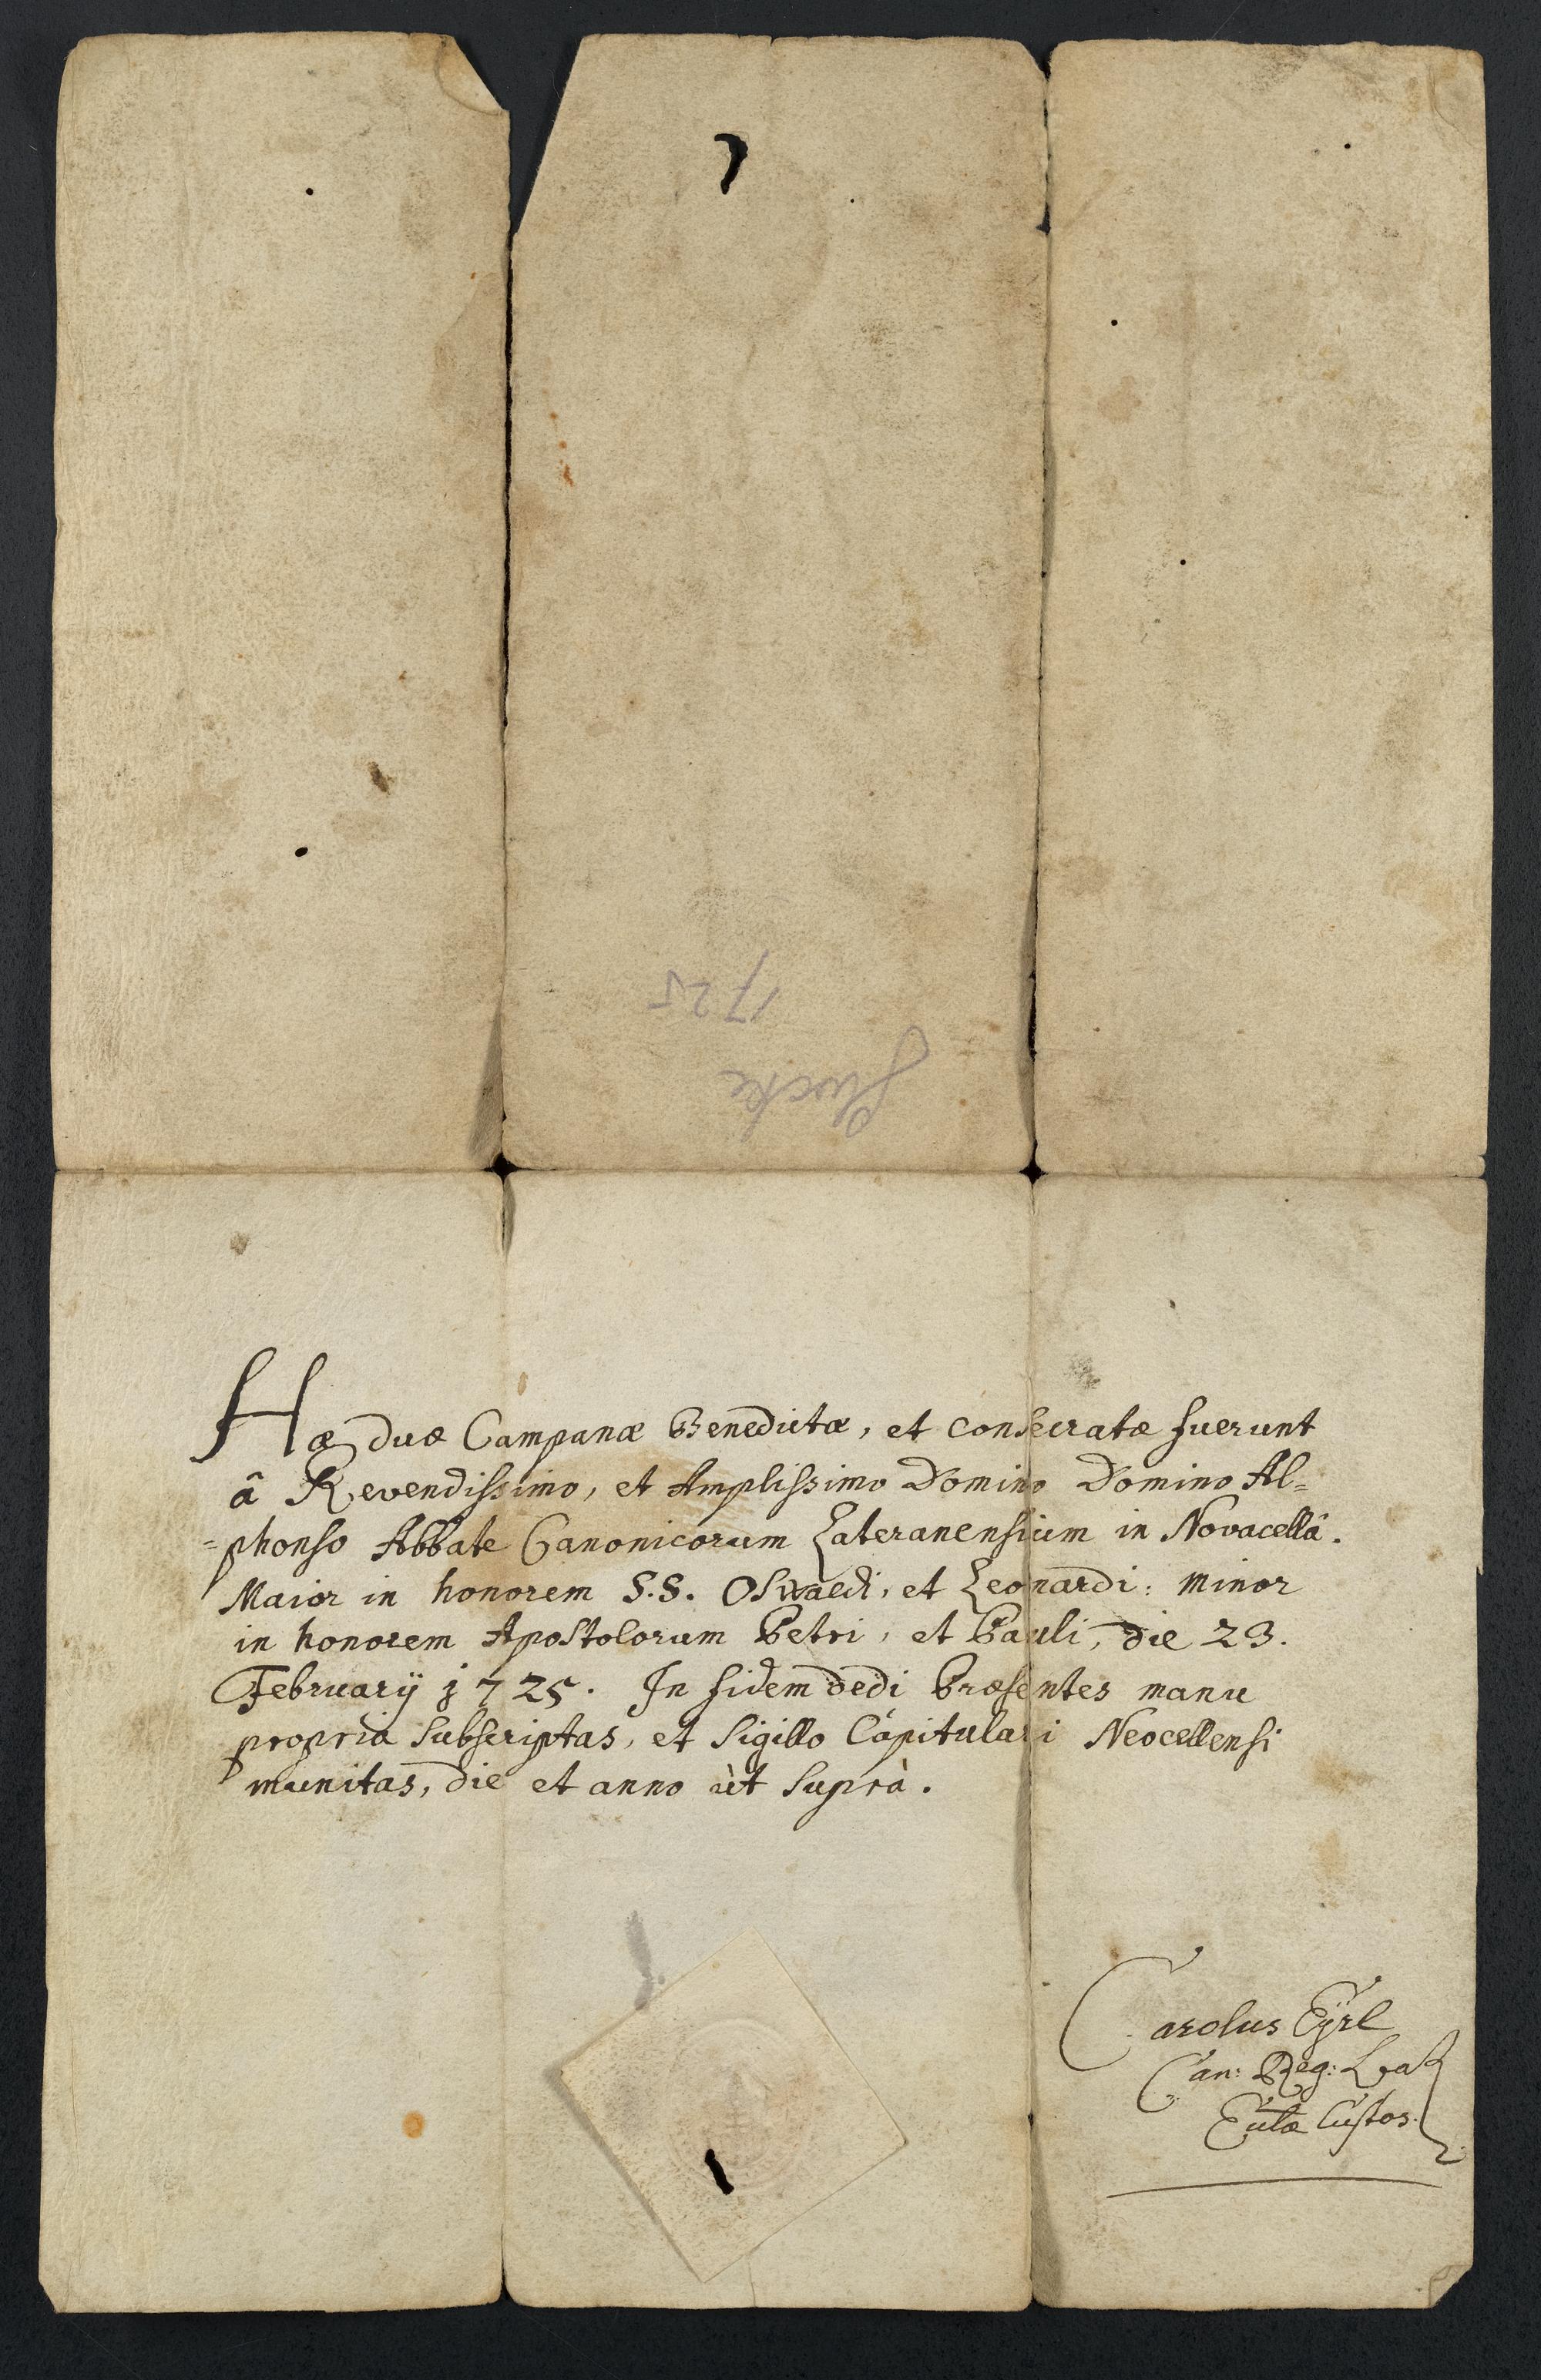 1725
Glocke
Hæ duæ Campanæ Benedictæ, et consecratæ fuerunt
â Revendissimo, et Amplissimo Domino Domino Al=
=phonso Abbate Canonicorum Lateranensium in Novacellâ.
Maior in honorem S.S. Oswaldi, et Leonardi: minor
in honorem Apostolorum Petri, et Pauli, die 23.
February 1725. In fidem dedi Præsentes manu
propria subscriptas, et Sigillo Capitulari Neocellensi
munitas, die et anno ùt suprà.
Carolus Eÿrl
Can: Reg:
Custos.